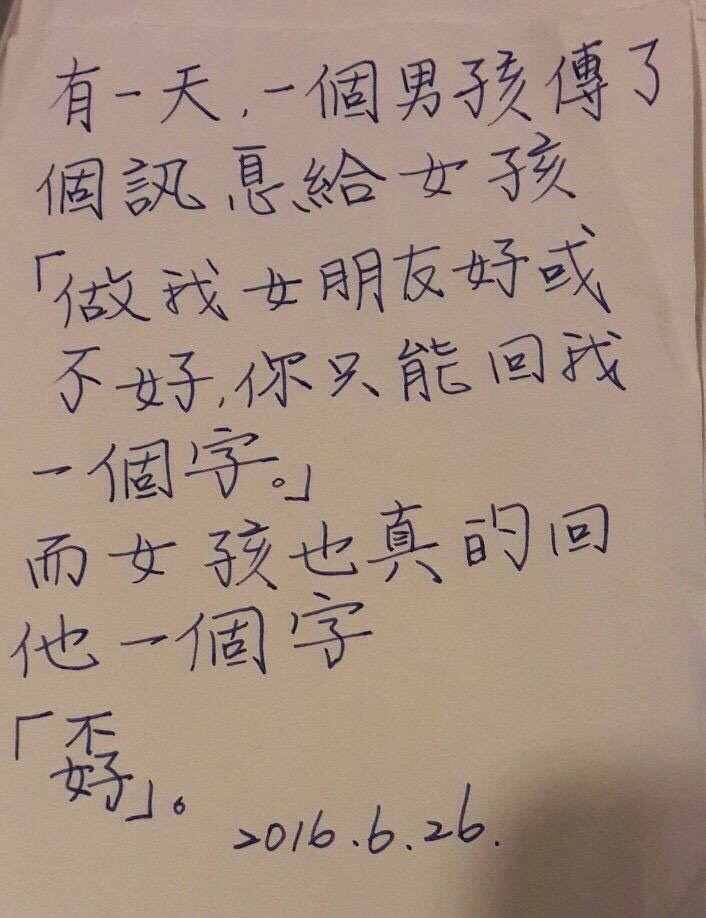 有一天，一個男孩傳了
個訊息給女孩
「做我女朋友好或
不好，你只能回我
一個字。」
而女孩也真的回
他一個字
「孬」。
2016.6.26.